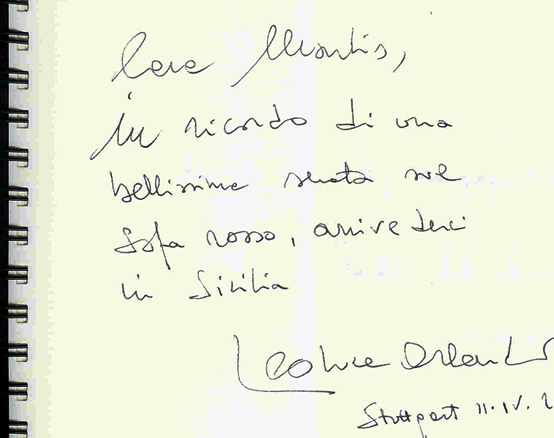 Caro Martis,
in ricordo di una
bellissima serata sul
sofa rosso, arrivederci
in Sicilia
Leoluca Orlando
Stuttgart 11.IV.